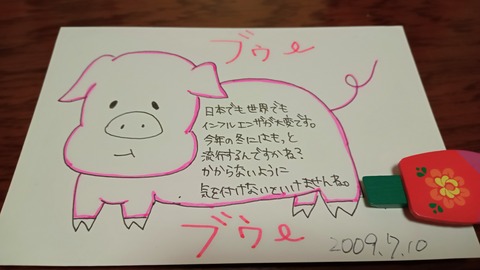 ブゥe
日本でも世界でも
インフルエンザが大変です。
今年の冬にはもっと
流行するんですかね？
かからないように
気を付けないといけませんね。
ブゥe
2009.7.10